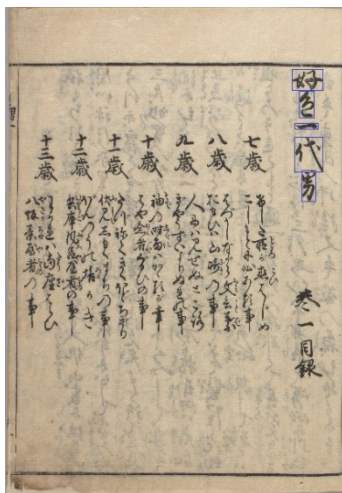 好色一代男 巻一目録
七歳
けした所が恋はじめ
こしもとに心ある事
八歳
はづかしながら文言葉
おもひは山崎の事
九歳
人には見せぬところ
ぬれの事
十歳
袖の時雨はかゝるが幸
はや念者ぐるひの事
十一歳
きく程ちぎり
伏見しもく町の事
十二歳
ぼんなうの垢かき
兵庫風呂屋者の事
十三歳
わかれは当座はらひ
八坂茶屋者の事